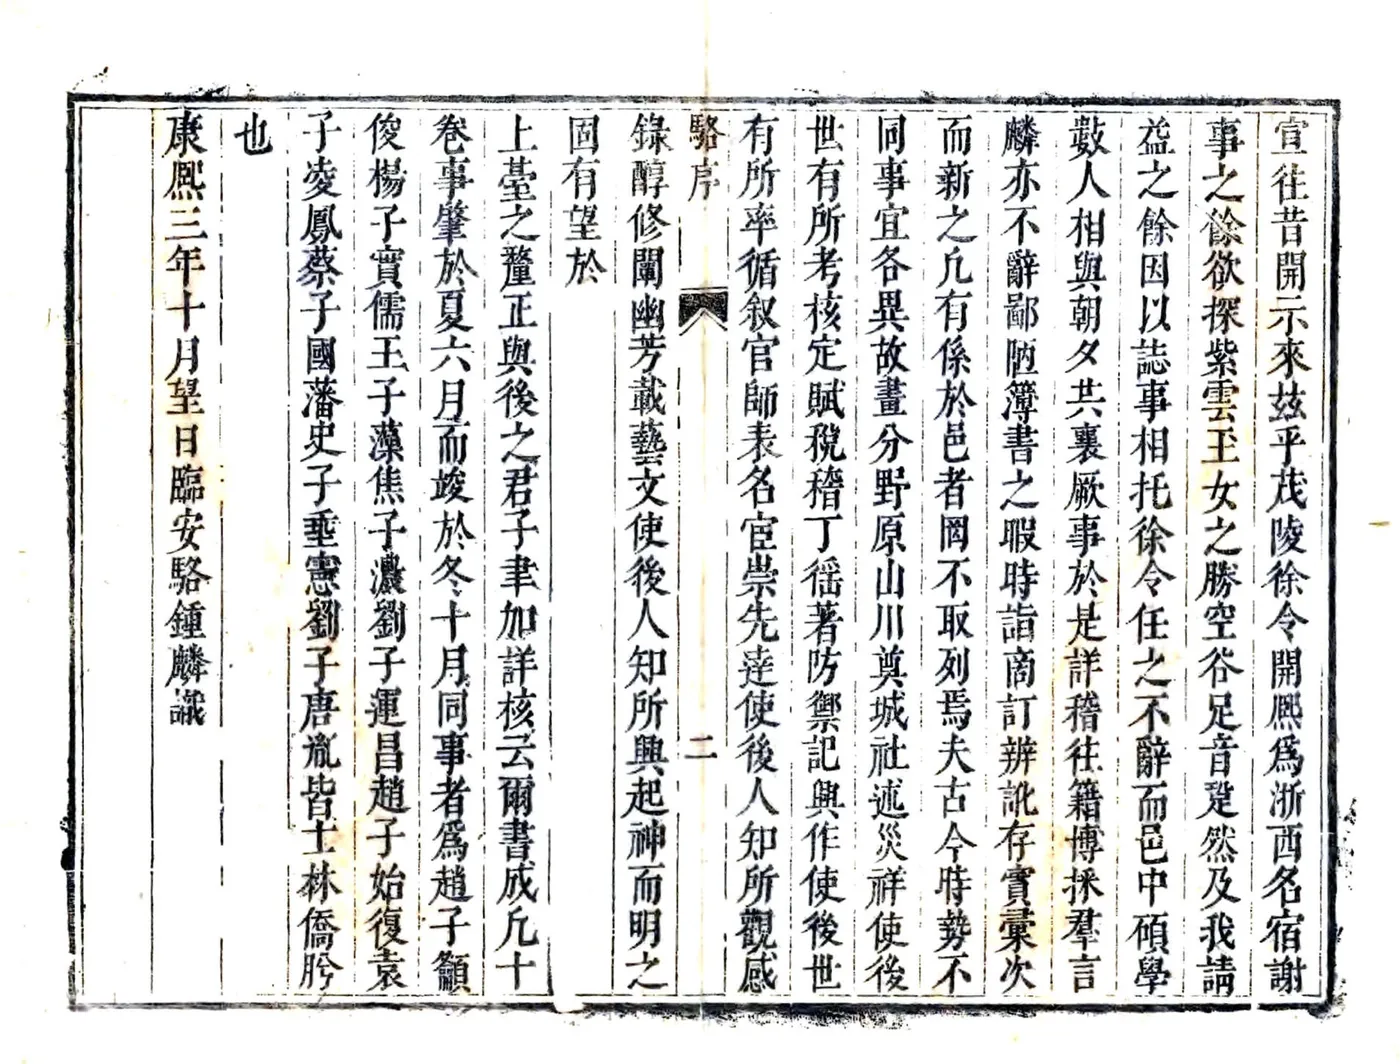 宣往昔開示來玆乎茂陵徐令開熙爲浙西名宿謝
事之餘欲探紫雲玉女之勝空谷足音跫然及我請
益之餘因以誌事相托徐令任之不辭而邑中碩學
數人相與朝夕共襄厥事於是詳稽往籍博採羣言
麟亦不辭鄙陋簿書之暇時詣商訂辨訛存實彙次
而新之凡有係於邑者罔不取列焉夫古今時勢不
同事宜各異故畫分野原山川奠城社述災祥使後
世有所考核定賦稅稽丁徭著防禦記興作使後世
有所率循叙官師表名宦崇先逹使後人知所觀感
駱序 二
錄醇修闡幽芳載藝文使後人知所興起神而明之
固有望於
上臺之釐正與後之君子聿加詳核云爾書成凡十
卷事肇於夏六月而竣於冬十月同事者爲趙子籲
俊楊子實儒王子藻焦子濃劉子運昌趙子始復袁
子凌鳳蔡子國藩史子垂憲劉子唐胤皆士林僑肹
也
康熙三年十月望日臨安駱鍾麟識